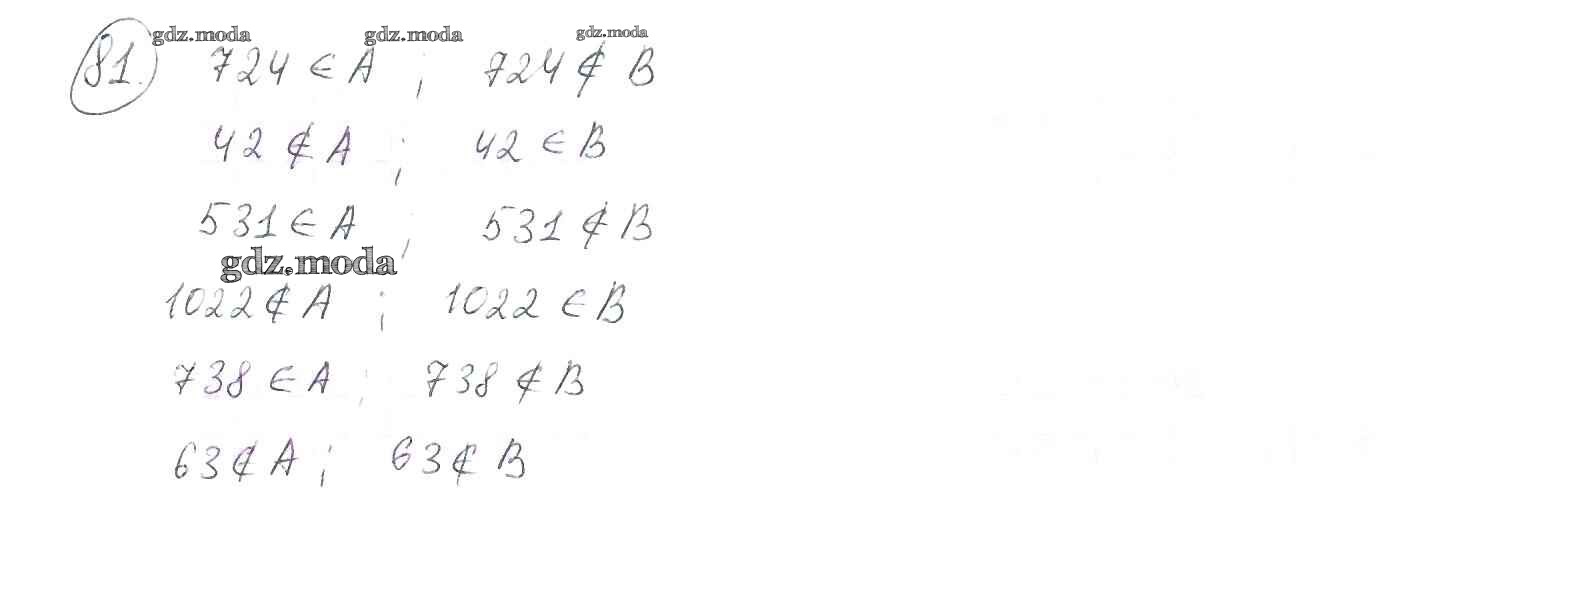 gdz.moda gdz.moda gdz.moda
81 724 ∈ A ; 724 ∉ B
42 ∉ A ; 42 ∈ B
531 ∈ A ; 531 ∉ B
gdz.moda
1022 ∉ A ; 1022 ∈ B
738 ∈ A ; 738 ∉ B
63 ∉ A ; 63 ∉ B